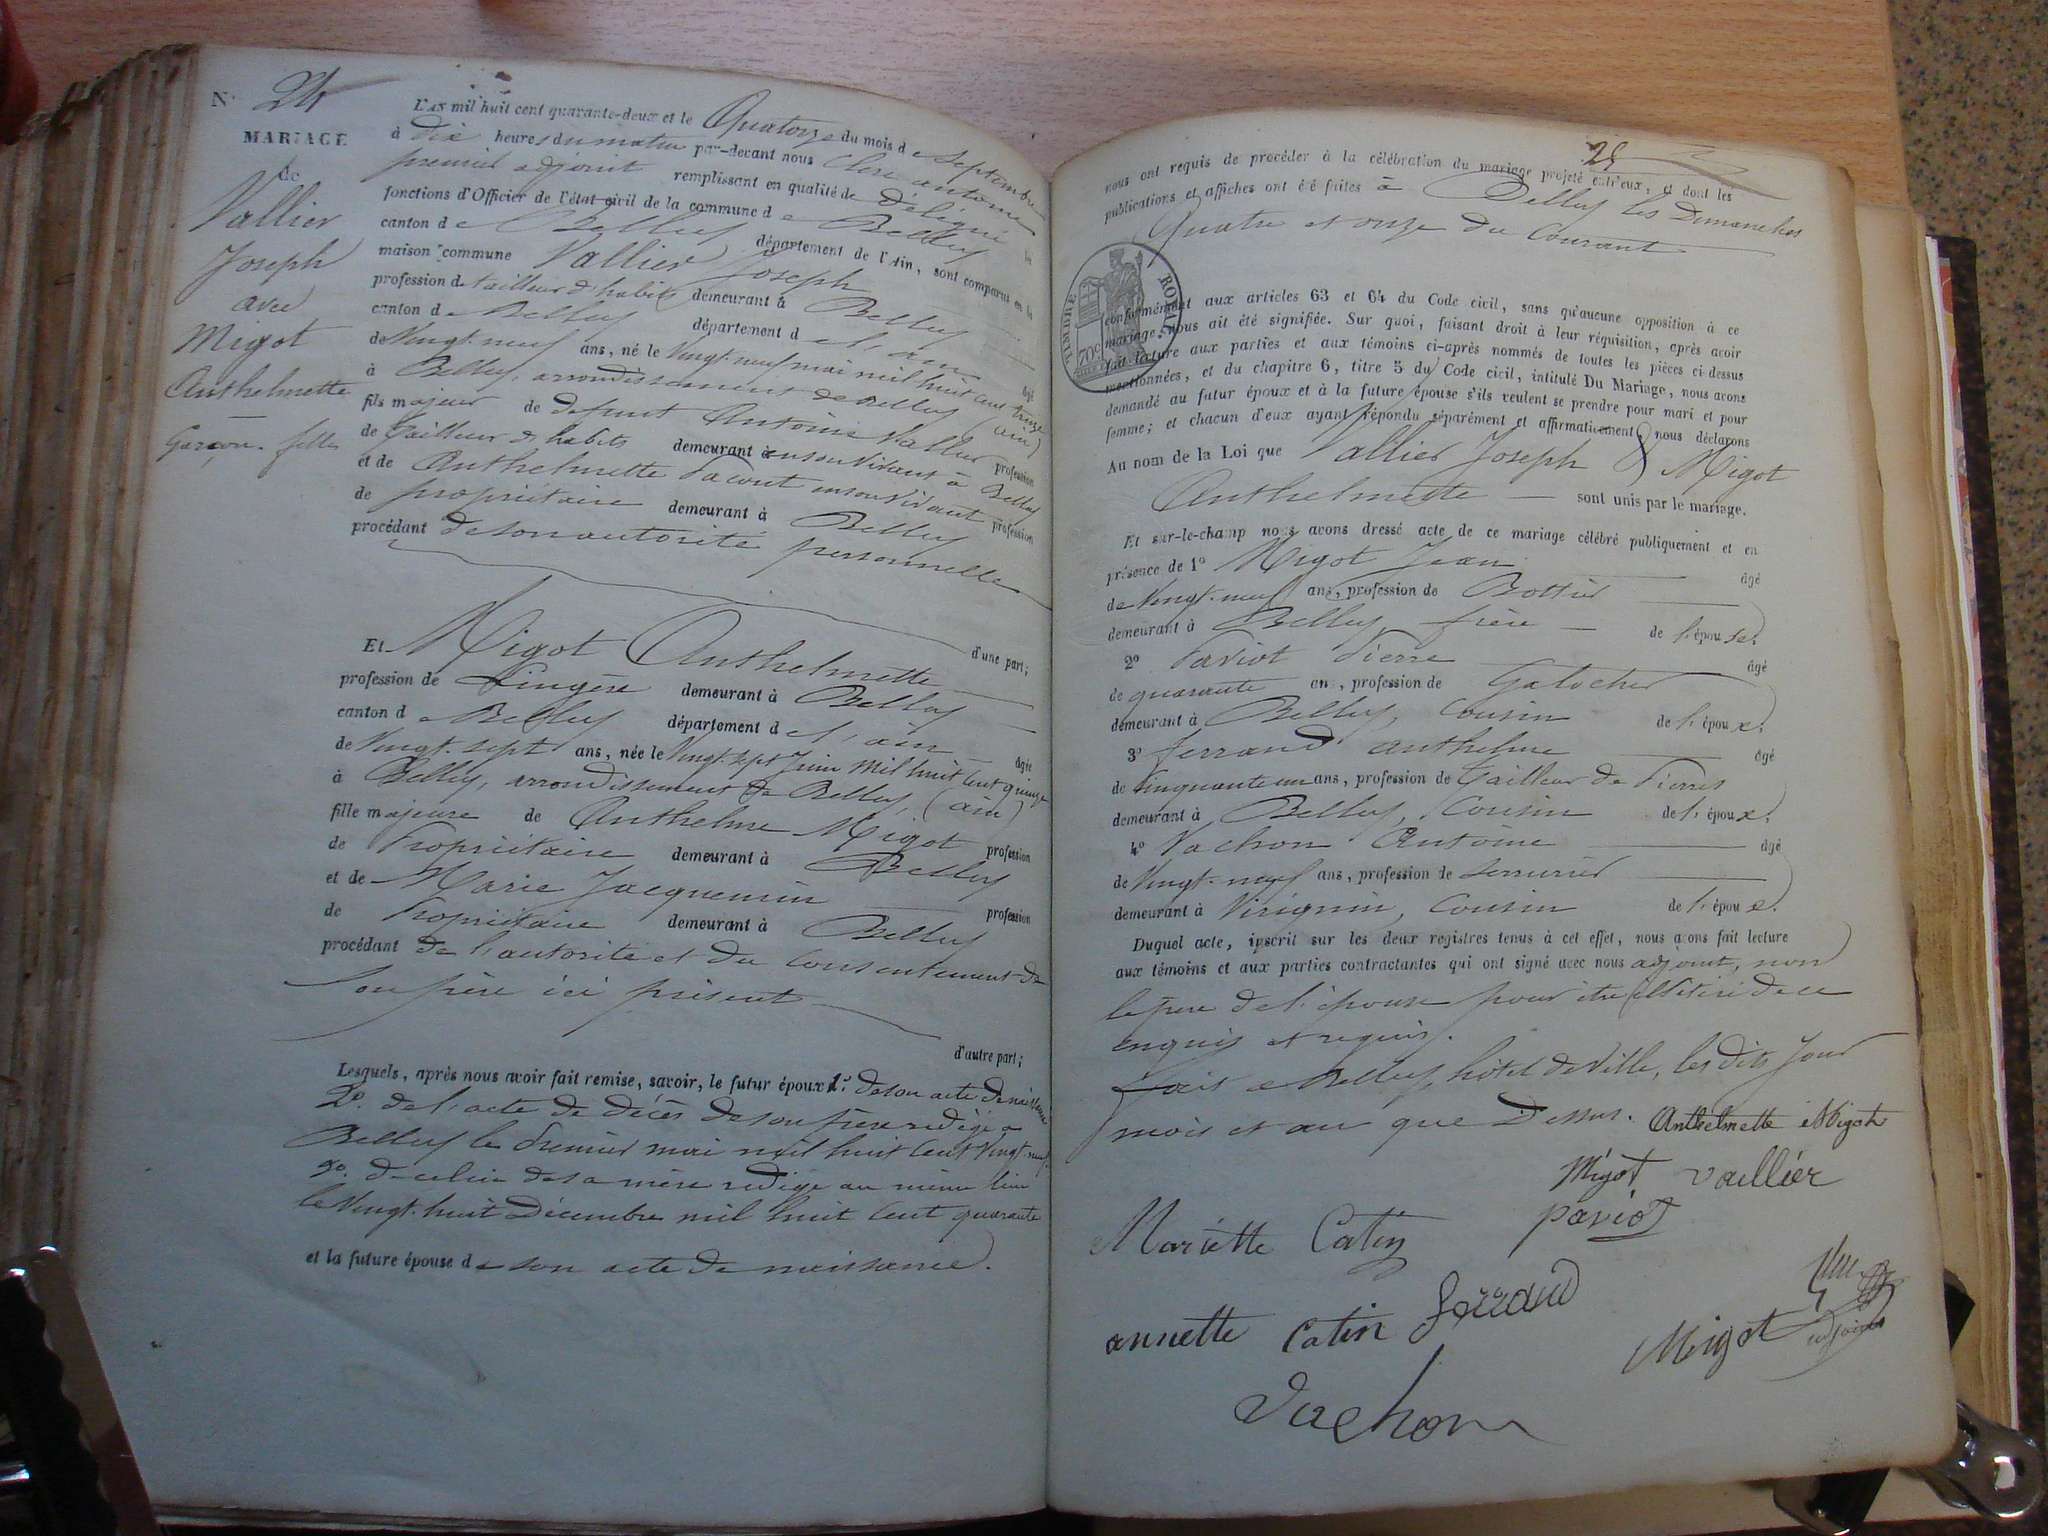 N° 24
MARIAGE
de
Vallier
Joseph
avec
Migot
Anthelmette
Garçon. fille
L'AN mil huit cent quarante-deux et le Quatorze du mois de Septembre
à dix heures du matin par-devant nous Clerc antoine
premier adjoint remplissant en qualité de délégué les
fonctions d'Officier de l'état civil de la commune de Belley
canton de Belley département de l'Ain, sont comparus en la
maison commune Vallier Joseph
profession de tailleur d'habits demeurant à Belley
canton de Belley département de l'ain âgé
de Vingt-neuf ans, né le Vingt-neuf mai mil huit cent treize
à Belley, arrondissement de Belley (ain)
fils majeur de defunt Antoine Vallier profession
de Tailleur d'habits demeurant en son vivant à Belley
et de Anthelmette en son vivant profession
de propriétaire demeurant à Belley
procédant de son autorité personnelle
d'une part;
Et Migot Anthelmette
profession de Lingère demeurant à Belley
canton de Belley département de l'ain âgée
de Vingt-sept ans, née le Vingt-sept Juin mil huit cent quinze
à Belley, arrondissement de Belley, (ain)
fille majeure de Anthelme Migot profession
de Propriétaire demeurant à Belley
et de Marie Jacquemin profession
de Propriétaire demeurant à Belley
procédant de l'autorité et du Consentement de
son père ici présent
d'autre part;
Lesquels, après nous avoir fait remise, savoir, le futur époux 1° de son acte de naissance
2° de l'acte de décès de son père rédigé a
Belley le premier mai mil huit cent vingt-neuf
3° de celui de sa mère rédigé au même lieu
le Vingt-huit Décembre mil huit cent quarante
et la future épouse de son acte de naissance.
25
nous ont requis de procéder à la célébration du mariage projeté entr'eux, et dont les
publications et affiches ont été faites à Belley les Dimanches
Quatre et onze du Courant
TIMBRE ROYAL
70c
conformément aux articles 63 et 64 du Code civil, sans qu'aucune opposition à ce
mariage nous ait été signifiée. Sur quoi, faisant droit à leur réquisition, après avoir
fait lecture aux parties et aux témoins ci-après nommés de toutes les pièces ci-dessus
mentionnées, et du chapitre 6, titre 5 du Code civil, intitulé Du Mariage, nous avons
demandé au futur époux et à la future épouse s'ils veulent se prendre pour mari et pour
femme; et chacun d'eux ayant répondu séparément et affirmativement, nous déclarons
Au nom de la Loi que Vallier Joseph & Migot
Anthelmette sont unis par le mariage.
Et sur-le-champ nous avons dressé acte de ce mariage célébré publiquement et en
présence de 1° Migot Jean âgé
de Vingt-neuf ans, profession de Bottier
demeurant à Belley frère de l'épouse.
2° Paviot Pierre âgé
de quarante ans, profession de Galocher
demeurant à Belley, Cousin de l'époux.
3° ferrand anthelme âgé
de Cinquante un ans, profession de Tailleur de Pierres
demeurant à Belley, Cousin de l'époux.
4° Vachon Antoine âgé
de Vingt-neuf ans, profession de serrurier
demeurant à Virignin, Cousin de l'époux.
Duquel acte, inscrit sur les deux registres tenus à cet effet, nous avons fait lecture
aux témoins et aux parties contractantes qui ont signé avec nous adjoint, non
le père de l'épouse pour être illétéré de ce
enquis et requis.
fait a Belley, hôtel de Ville, les dits Jour
mois et an que Dessus. Anthelmette Migot
Migot vallier
Mariette Catin paviot
annette Catin ferrand
Migot adjoint
Vachon